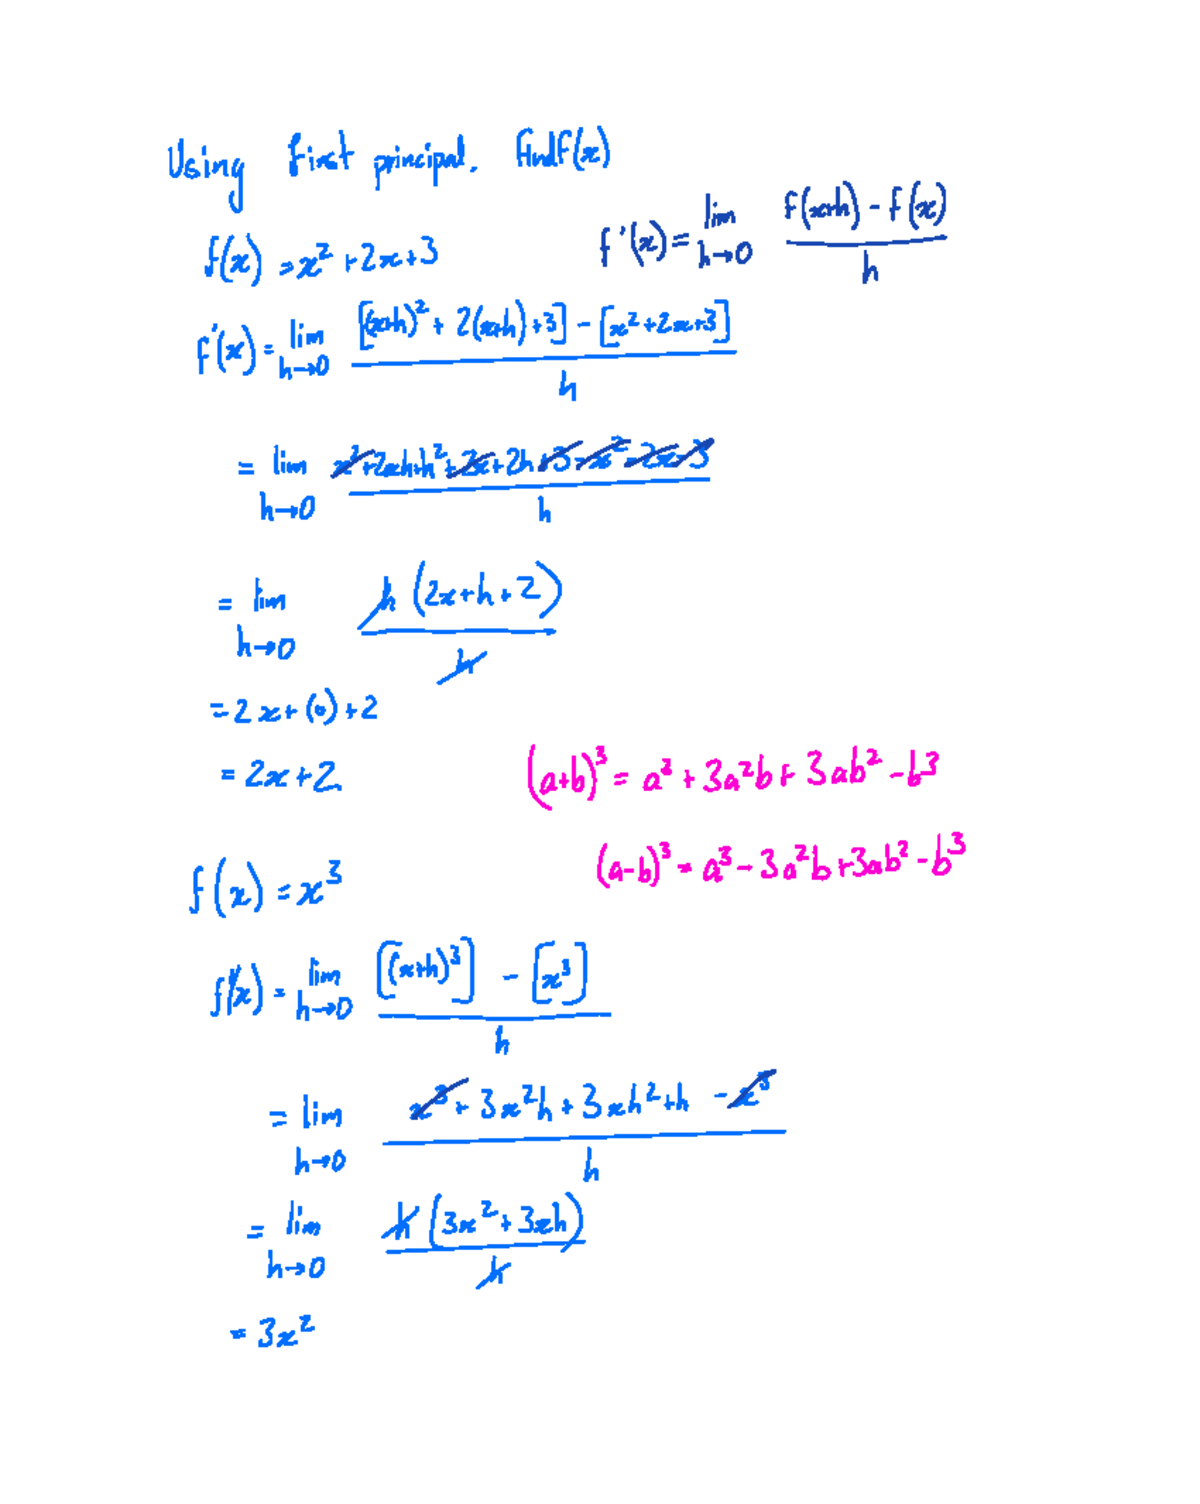 Using first principal. find f(x)
f'(x) = lim h→0 (f(x+h) - f(x)) / h
f(x) = x² + 2x + 3
f'(x) = lim h→0 ([(x+h)² + 2(x+h) + 3] - [x² + 2x + 3]) / h
= lim h→0 (x² + 2xh + h² + 2x + 2h + 3 - x² - 2x - 3) / h
= lim h→0 h(2x + h + 2) / h
= 2x + (0) + 2
= 2x + 2
(a+b)³ = a³ + 3a²b + 3ab² - b³
(a-b)³ = a³ - 3a²b + 3ab² - b³
f(x) = x³
f'(x) = lim h→0 ([(x+h)³] - [x³]) / h
= lim h→0 (x³ + 3x²h + 3xh² + h - x³) / h
= lim h→0 h(3x² + 3xh) / h
= 3x²